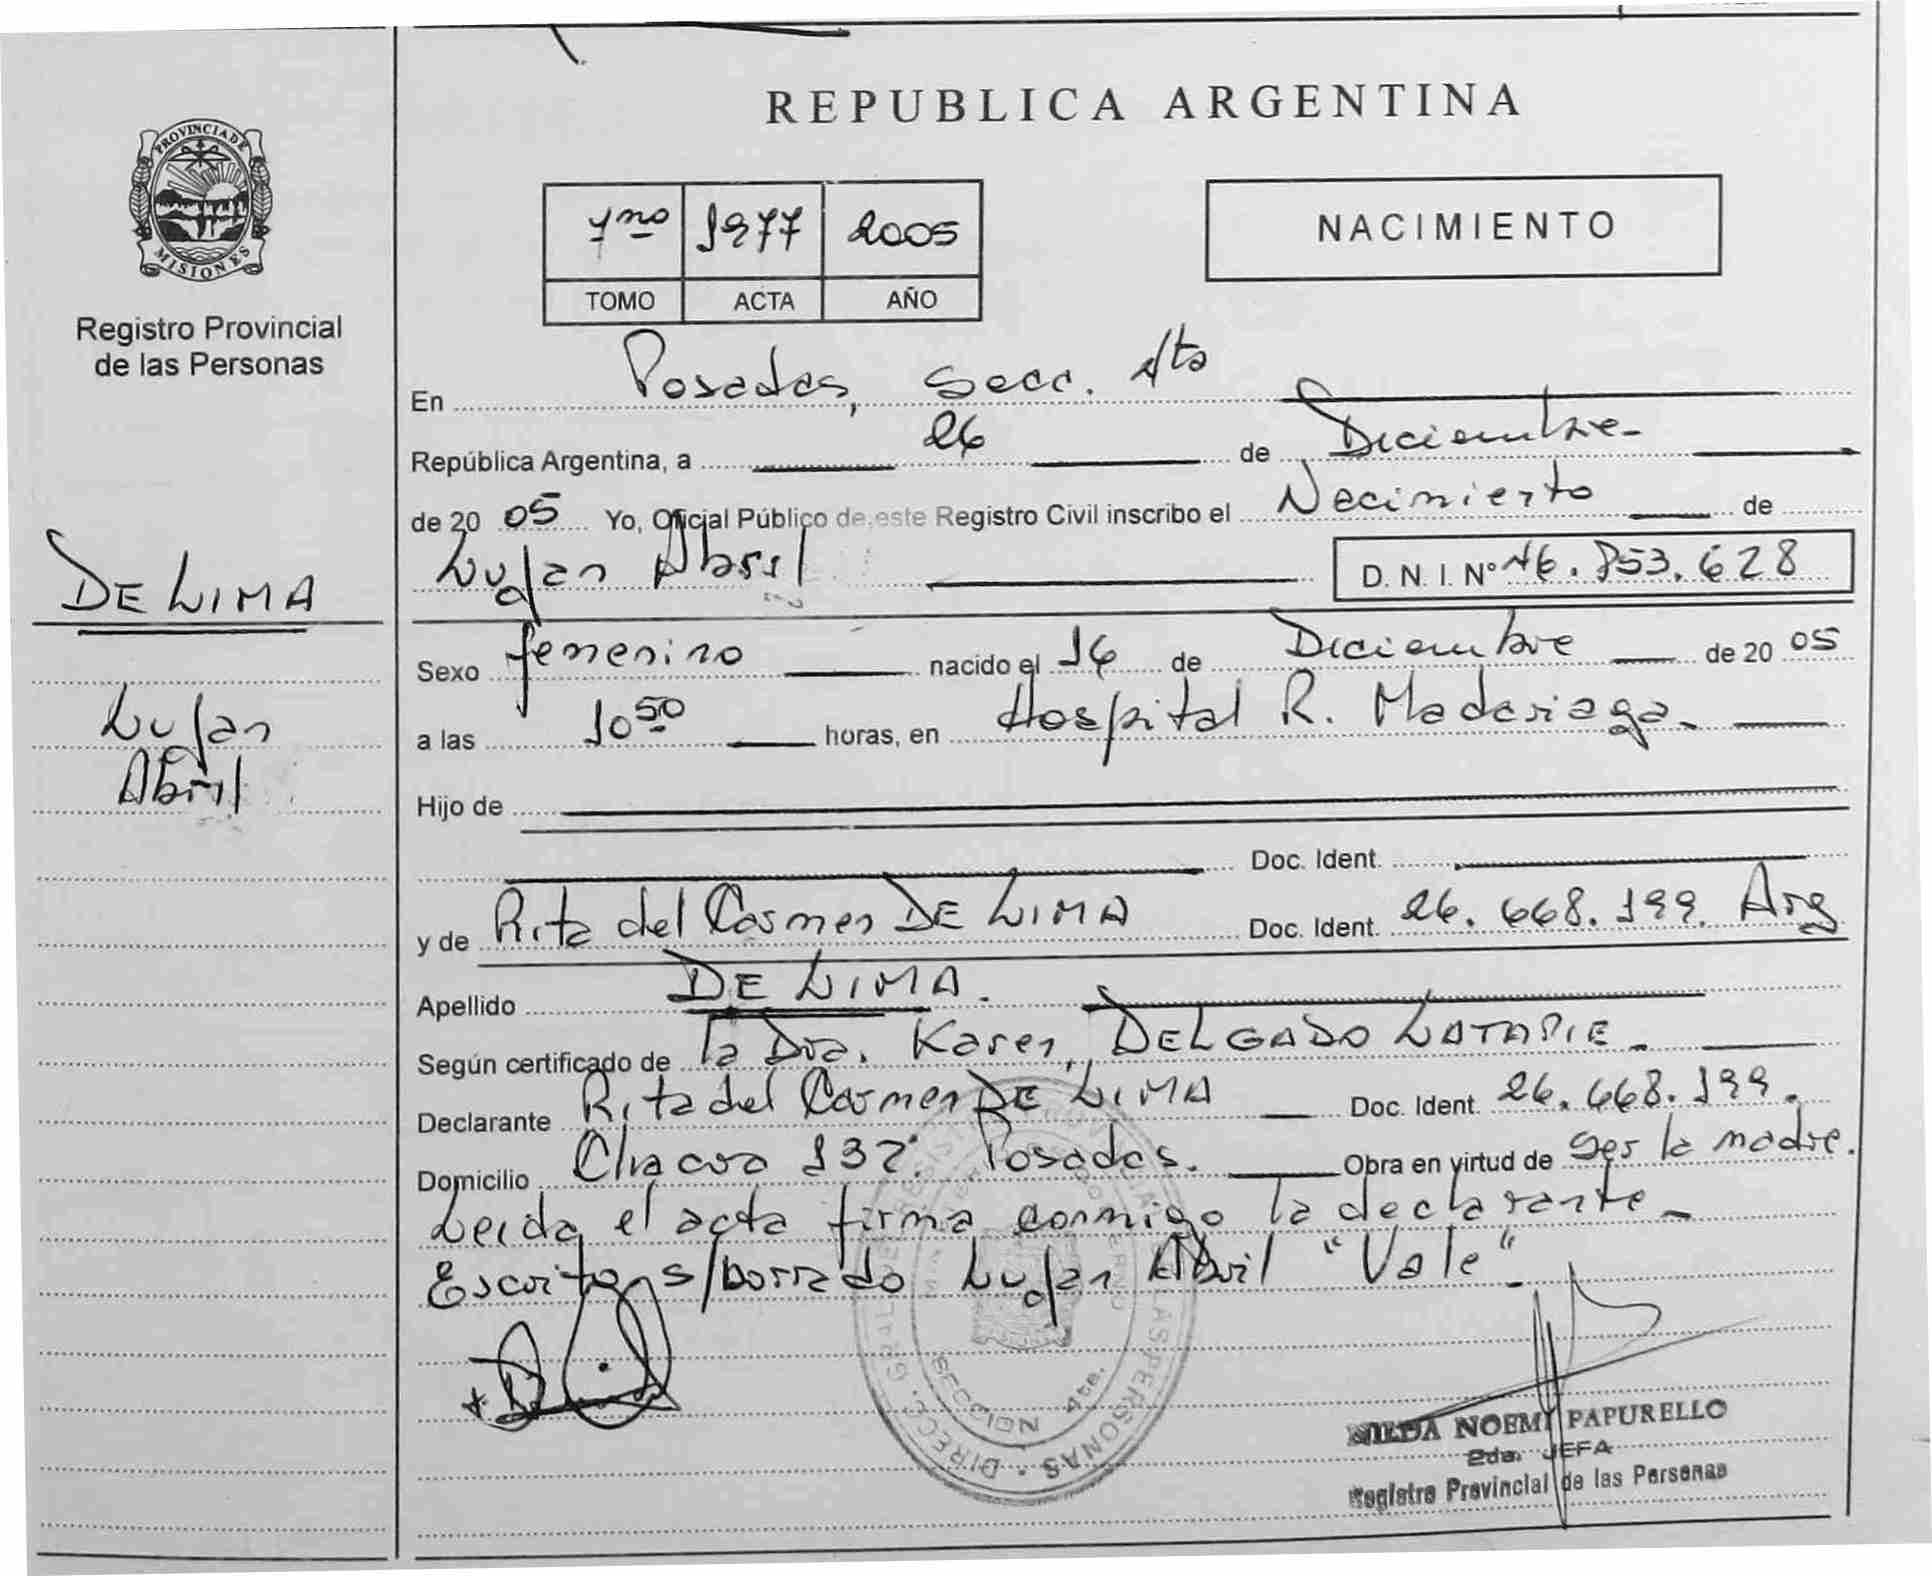 PROVINCIA DE
MISIONES
Registro Provincial
de las Personas
DE LIMA
Lujan
Abril
REPUBLICA ARGENTINA
7mo 1977 2005
TOMO ACTA AÑO
NACIMIENTO
En Posadas, Secc. 4ta
República Argentina, a 26 de Diciembre
de 2005 Yo, Oficial Público de este Registro Civil inscribo el Nacimiento de
Lujan Abril D. N. I. Nº 46.853.628
Sexo femenino nacido el 16 de Diciembre de 2005
a las 10 50 horas, en Hospital R. Madariaga
Hijo de
Doc. Ident.
y de Rita del Carmen DE LIMA Doc. Ident. 26.668.199. Arg
Apellido DE LIMA.
Según certificado de la Dra. Karen DELGADO LATAPIE
Declarante Rita del Carmen DE LIMA Doc. Ident. 26.668.199.
Domicilio Chacra 137. Posadas. Obra en virtud de ser la madre.
Leida el acta firma conmigo la declarante
Escrito s/borrado Lujan Abril "Vale"
SECCION 4ta.
NILDA NOEMY PAPURELLO
2da. JEFA
Registro Provincial de las Personas